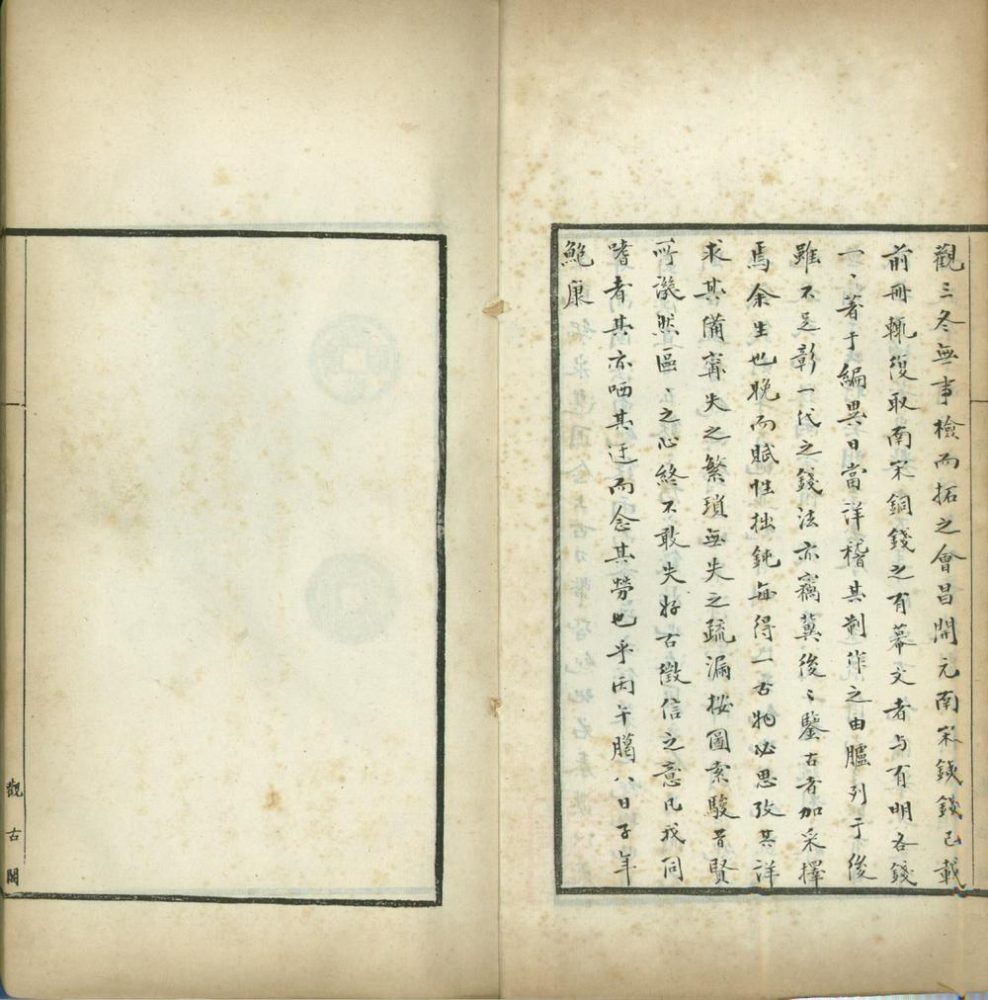 觀三冬無事檢而拓之會昌開元南宋鐵錢已載
前冊輒復取南宋銅錢之有幕文者与有明各錢
一〻著于編異日當詳稽其制作之由臚列于後
雖不足彰一代之錢法亦竊冀後〻鑒古者加采擇
焉余生也晚而賦性拙鈍每得一古物必思攷其詳
求其備寧失之繁瑣毋失之疏漏按圖索駿昔賢
所譏然區〻之心終不敢失好古徵信之意凡我同
嗜者其亦哂其迂而念其勞也乎丙午臈八日子年
鮑康
觀古閣